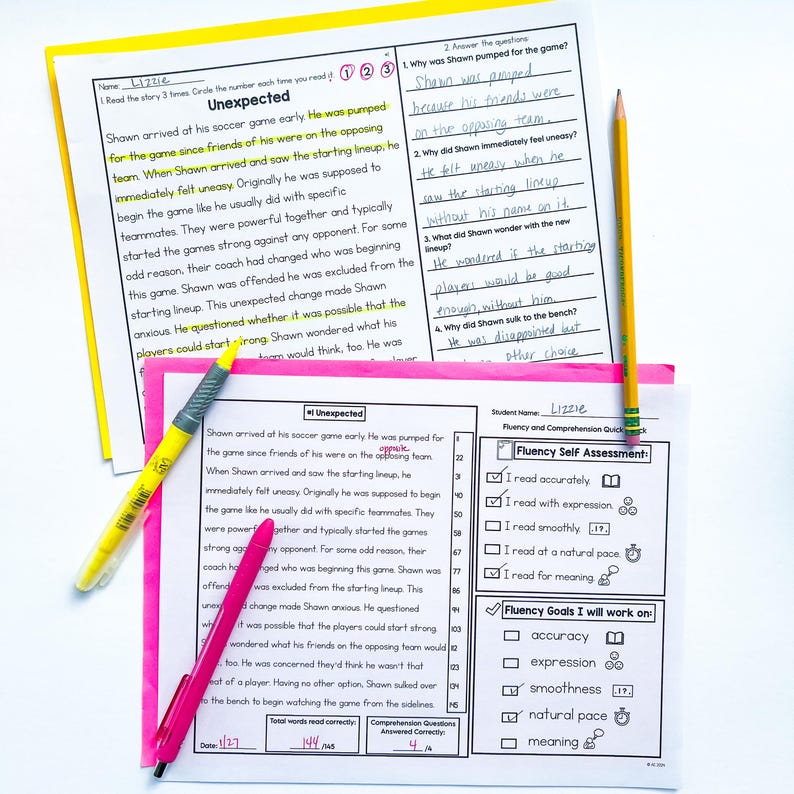 Name: Lizzie
#1
1. Read the story 3 times. Circle the number each time you read it. 1 2 3
Unexpected
Shawn arrived at his soccer game early. He was pumped
for the game since friends of his were on the opposing
team. When Shawn arrived and saw the starting lineup, he
immediately felt uneasy. Originally he was supposed to
begin the game like he usually did with specific
teammates. They were powerful together and typically
started the games strong against any opponent. For some
odd reason, their coach had changed who was beginning
this game. Shawn was offended he was excluded from the
starting lineup. This unexpected change made Shawn
anxious. He questioned whether it was possible that the
players could start strong. Shawn wondered what his
team would think, too. He was
player
2. Answer the questions:
1. Why was Shawn pumped for the game?
Shawn was pumped
because his friends were
on the opposing team.
2. Why did Shawn immediately feel uneasy?
He felt uneasy when he
saw the starting lineup
without his name on it.
3. What did Shawn wonder with the new
lineup?
He wondered if the starting
players would be good
enough without him.
4. Why did Shawn sulk to the bench?
He was disappointed but
other choice
#1 Unexpected
Shawn arrived at his soccer game early. He was pumped for 11
opposite
the game since friends of his were on the opposing team. 22
When Shawn arrived and saw the starting lineup, he 31
immediately felt uneasy. Originally he was supposed to begin 40
the game like he usually did with specific teammates. They 50
were powerf gether and typically started the games 58
strong aga ny opponent. For some odd reason, their 67
coach ha nged who was beginning this game. Shawn was 77
offend was excluded from the starting lineup. This 86
unex d change made Shawn anxious. He questioned 94
wh it was possible that the players could start strong. 103
wondered what his friends on the opposing team would 112
, too. He was concerned they'd think he wasn't that 123
eat of a player. Having no other option, Shawn sulked over 134
to the bench to begin watching the game from the sidelines. 145
Date: 1/27
Total words read correctly:
144 /145
Comprehension Questions
Answered Correctly:
4 /4
Student Name: Lizzie
Fluency and Comprehension Quick ck
Fluency Self Assessment:
I read accurately.
I read with expression.
I read smoothly. .!?.
I read at a natural pace.
I read for meaning.
Fluency Goals I will work on:
accuracy
expression
smoothness .!?.
natural pace
meaning
© AC 2024
TICONDEROGA